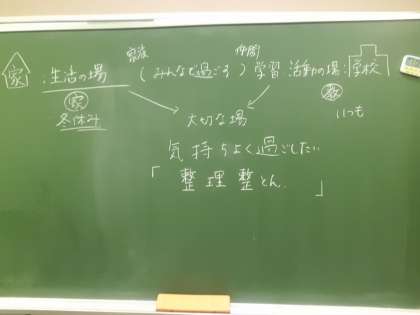 家族 仲間
家 :生活の場 (みんなで過ごす) 学習 活動の場:学校
家 教
冬休み 大切な場 いつも
気持ちよく過ごしたい
「整理整とん 」